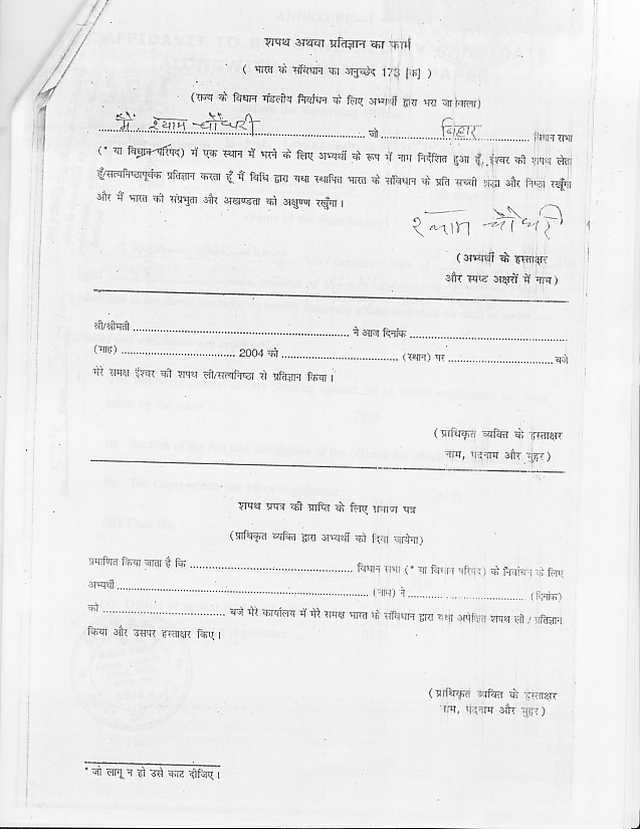 शपथ अथवा प्रतिज्ञान का फार्म
( भारत के संविधान का अनुच्छेद 173 [क] )
(राज्य के विधान मंडलीय निर्वाचन के लिए अभ्यर्थी द्वारा भरा जानेवाला)
मैं श्याम चौधरी जो बिहार विधान सभा
(* या विधान परिषद) में एक स्थान में भरने के लिए अभ्यर्थी के रूप में नाम निर्देशित हुआ हूँ, ईश्वर की शपथ लेता
हूँ/सत्यनिष्ठापूर्वक प्रतिज्ञान करता हूँ मैं विधि द्वारा यथा स्थापित भारत के संविधान के प्रति सच्ची श्रद्धा और निष्ठा रखूँगा
और मैं भारत की संप्रभुता और अखण्डता को अक्षुण्ण रखूँगा।
श्याम चौधरी
(अभ्यर्थी के हस्ताक्षर
और स्पष्ट अक्षरों में नाम)
श्री/श्रीमती ........ ने आज दिनांक ........
(माह) ........ 2004 को ........ (स्थान) पर ........ बजे
मेरे समक्ष ईश्वर की शपथ ली/सत्यनिष्ठा से प्रतिज्ञान किया।
(प्राधिकृत व्यक्ति के हस्ताक्षर
नाम, पदनाम और मुहर)
शपथ प्रपत्र की प्राप्ति के लिए प्रमाण पत्र
(प्राधिकृत व्यक्ति द्वारा अभ्यर्थी को दिया जायेगा)
प्रमाणित किया जाता है कि ........ विधान सभा (* या विधान परिषद) के निर्वाचन के लिए
अभ्यर्थी ........ (नाम) ने ........ (दिनांक)
को ........ बजे मेरे कार्यालय में मेरे समक्ष भारत के संविधान द्वारा यथा अपेक्षित शपथ ली / प्रतिज्ञान
किया और उसपर हस्ताक्षर किए।
(प्राधिकृत व्यक्ति के हस्ताक्षर
नाम, पदनाम और मुहर)
* जो लागू न हो उसे काट दीजिए।